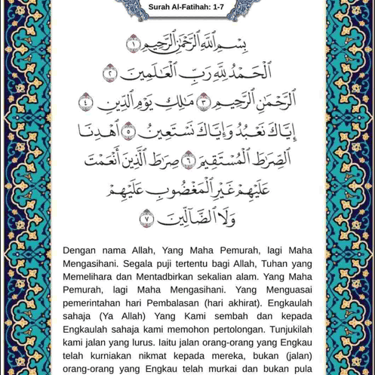 Surah Al-Fatihah: 1-7
بِسْمِ اللَّهِ الرَّحْمَٰنِ الرَّحِيمِ ١
الْحَمْدُ لِلَّهِ رَبِّ الْعَالَمِينَ ٢
الرَّحْمَٰنِ الرَّحِيمِ ٣ مَالِكِ يَوْمِ الدِّينِ ٤
إِيَّاكَ نَعْبُدُ وَإِيَّاكَ نَسْتَعِينُ ٥ اهْدِنَا
الصِّرَاطَ الْمُسْتَقِيمَ ٦ صِرَاطَ الَّذِينَ أَنْعَمْتَ
عَلَيْهِمْ غَيْرِ الْمَغْضُوبِ عَلَيْهِمْ
وَلَا الضَّالِّينَ ٧
Dengan nama Allah, Yang Maha Pemurah, lagi Maha
Mengasihani. Segala puji tertentu bagi Allah, Tuhan yang
Memelihara dan Mentadbirkan sekalian alam. Yang Maha
Pemurah, lagi Maha Mengasihani. Yang Menguasai
pemerintahan hari Pembalasan (hari akhirat). Engkaulah
sahaja (Ya Allah) Yang Kami sembah dan kepada
Engkaulah sahaja kami memohon pertolongan. Tunjukilah
kami jalan yang lurus. Iaitu jalan orang-orang yang Engkau
telah kurniakan nikmat kepada mereka, bukan (jalan)
orang-orang yang Engkau telah murkai dan bukan pula